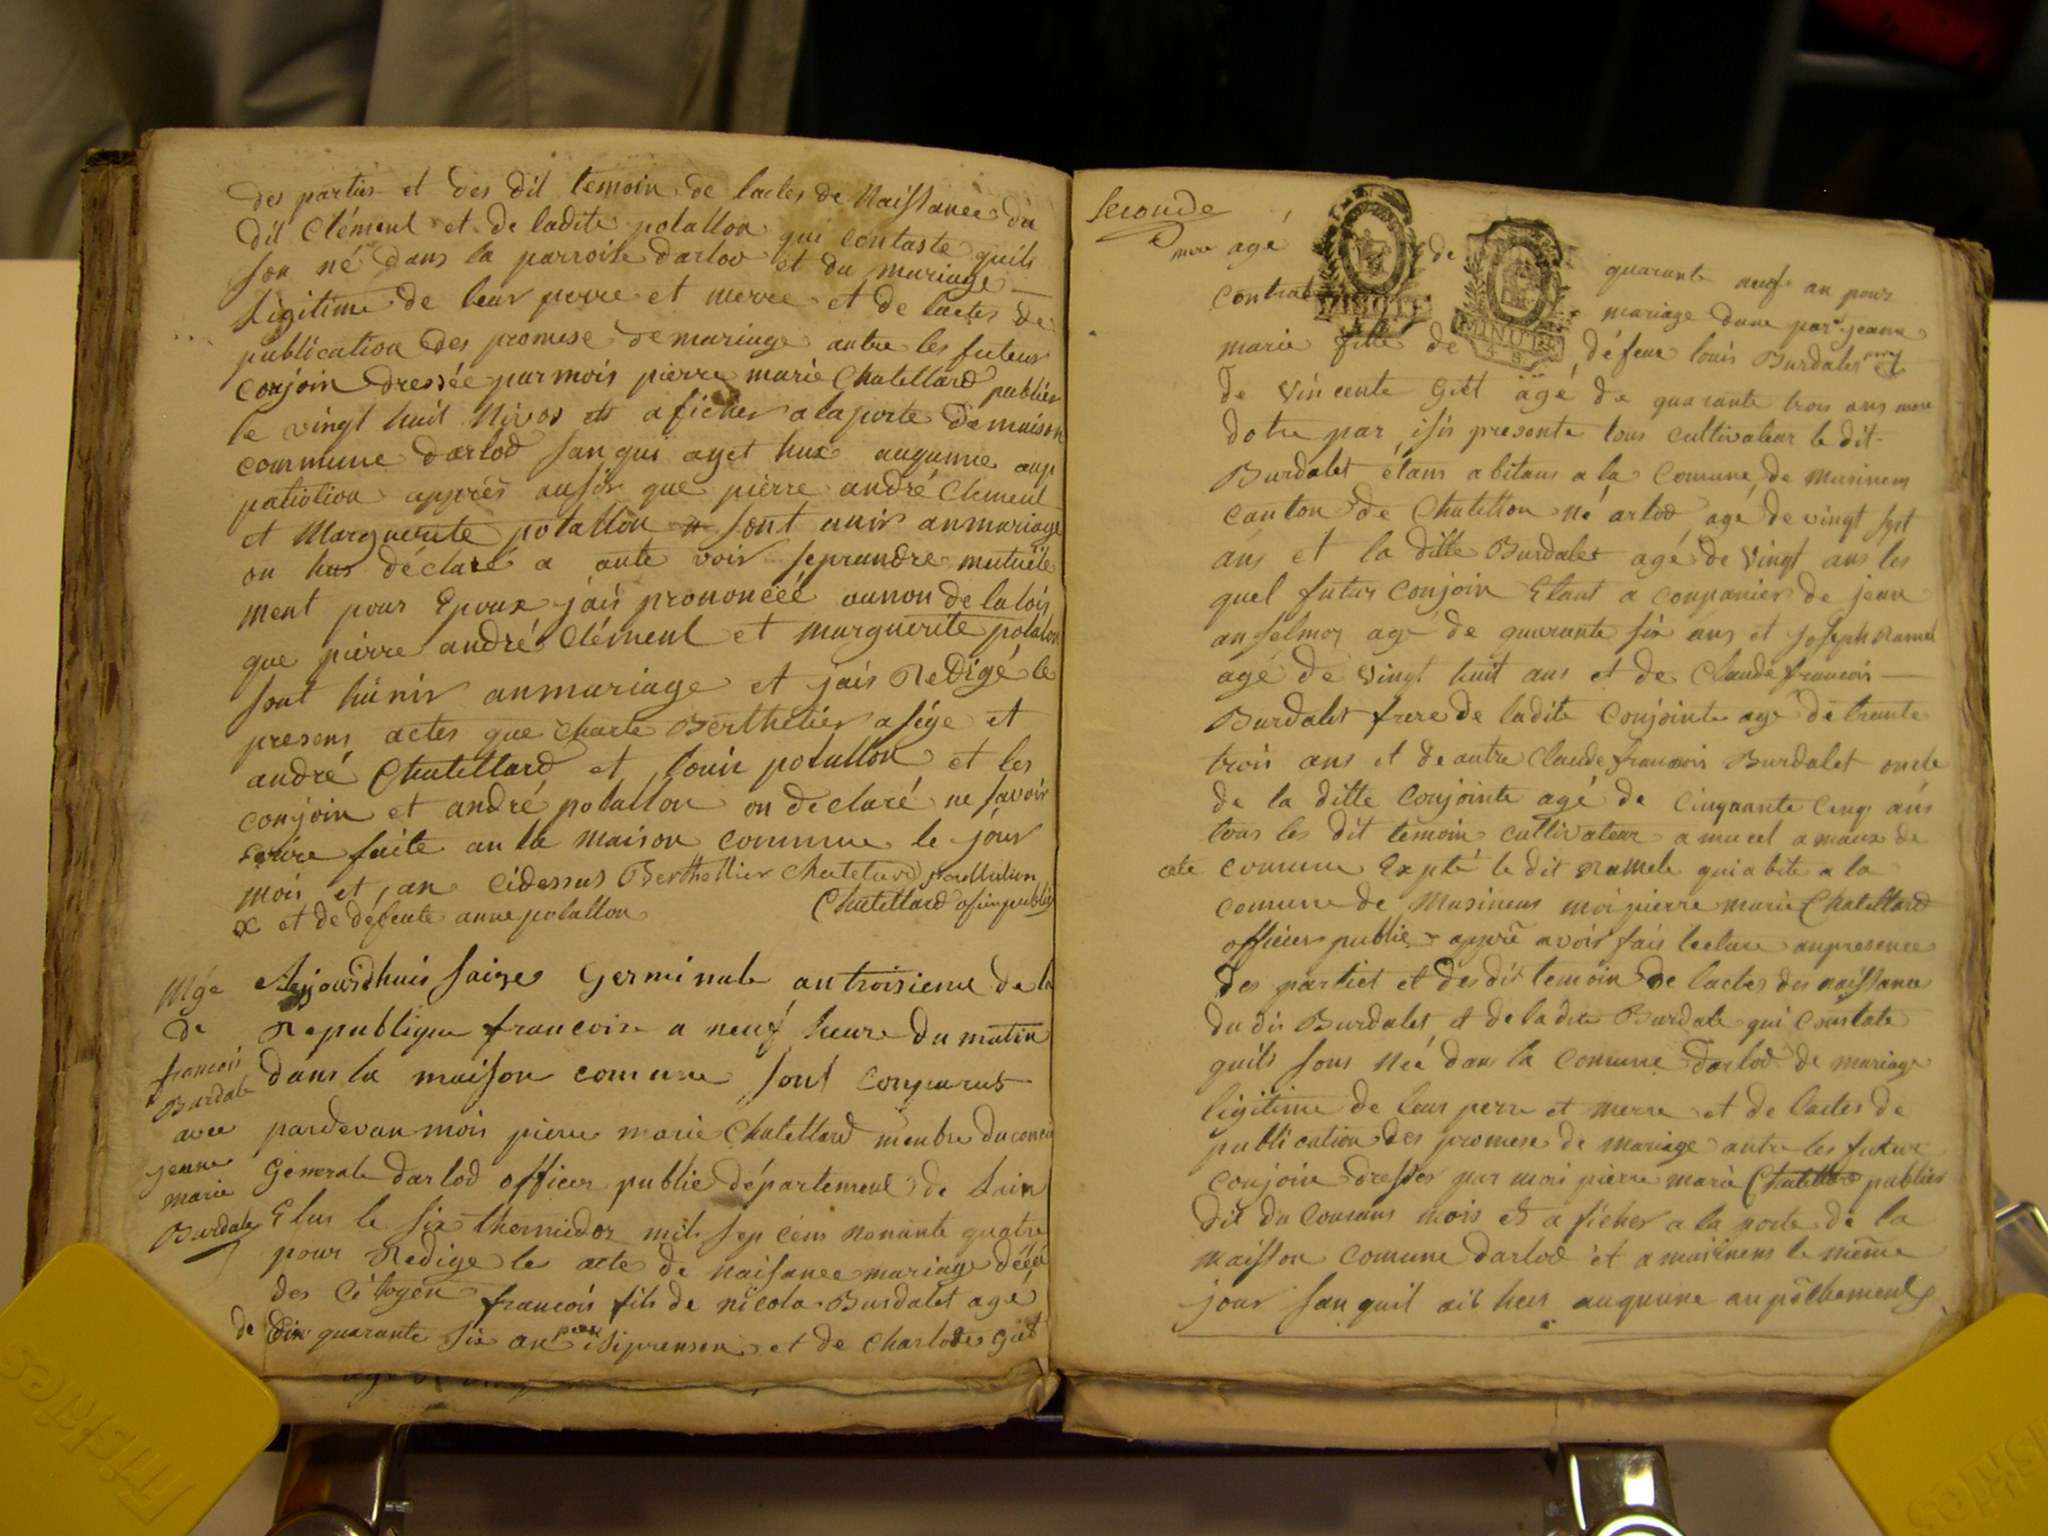 des parties et des dit temoin de lactes de Naissance du
dit Clément et de ladite potallon qui contaste quils
son né dans la parroise darlod et du mariage
Legitime de leur perre et merre et de lactes de
publication des promese de mariage antre les futeur
conjoin dressée par mois pierre marie Chatellard publier
le vingt huit Nivos et aficher a la porte de maison
commune darlod san qui ayet hux augunne anp
apprès ausir que pierre andré Clement
et Marguerite potallon sont unir anmariage
on hus déclaré a aute voir seprandre mutuële
ment pour Epoux jais prononcéé aunon de la lois
que pierre andré Clément et marguerite potalon
sont hünir anmariage et jais Redigé le
presens actes que charle Berthelier a sÿge et
andré Chatellard et louis potallon et les
conjoin et andré potallon on declaré ne savoir
ecrire faite an la maison commune le jour
mois et an cidessus Berthellier Chatelard
x et de défente anne potallon Chatellard ofisier public
Mge
de
francois
Burdale
avec
jeanne
marie
Burdale
Aujourdhuis saize Germinale antroisieme de la
Republique francoise a neuf heure du matin
dans la maison comune sont comparus
pardevan mois pierre marie Chatellard menbre du conci
Generale darlod officier public département de Lain
Elus le six thermidor mils sep cens nonante quatre
pour Redige les acte de naisance mariage décé
des Citoyen francois fils de nicola Burdalet age
de quarante six an pere isi prensen et de Charlote Giet
Seconde
mere agé de quarante neuf an pour
contrat mariage dune par jeanne
marie fille de défeux louis Burdalet et
de Vincente Giet agé de quarante trois ans mere
dotre par isis presente tous cultivateur le dit
Burdalet étans abitans a la Comune de Musinens
canton de Chatillon né arlod agé de vingt sept
ans et la ditte Burdalet agé de Vingt ans les
quel futur Conjoin Etant a conpanier de jean
anselmoz agé de quarante six ans et joseph Ramel
agé de vingt huit ans et de Claude francois
Burdalet frere de ladite Conjointe agé de trante
trois ans et de autre Claude francois Burdalet oncle
de la ditte Conjointe agé de Cinquante Cinq ans
tous les dit temoin cultivateur
cete comune Expté le dit Ramele qui abite a la
comune de Musinens moi pierre marie Chatellard
officier public apprè avoir fais lecture anpresence
des partiet et des dit temoin de lactes des naissance
du dis Burdalet et de la dite Burdale qui Constate
quils sons Née dans la Comune Darlod de mariage
ligitime de leur perre et merre et de lactes de
publication des promese de mariage antre les futur
conjoin dresser par moi pierre marie Chatellard publier
dit du Courans mois et a ficher a la porte de la
maisson Comune darlod et a musinens le même
jour san quil ait heu augunne anpêchement